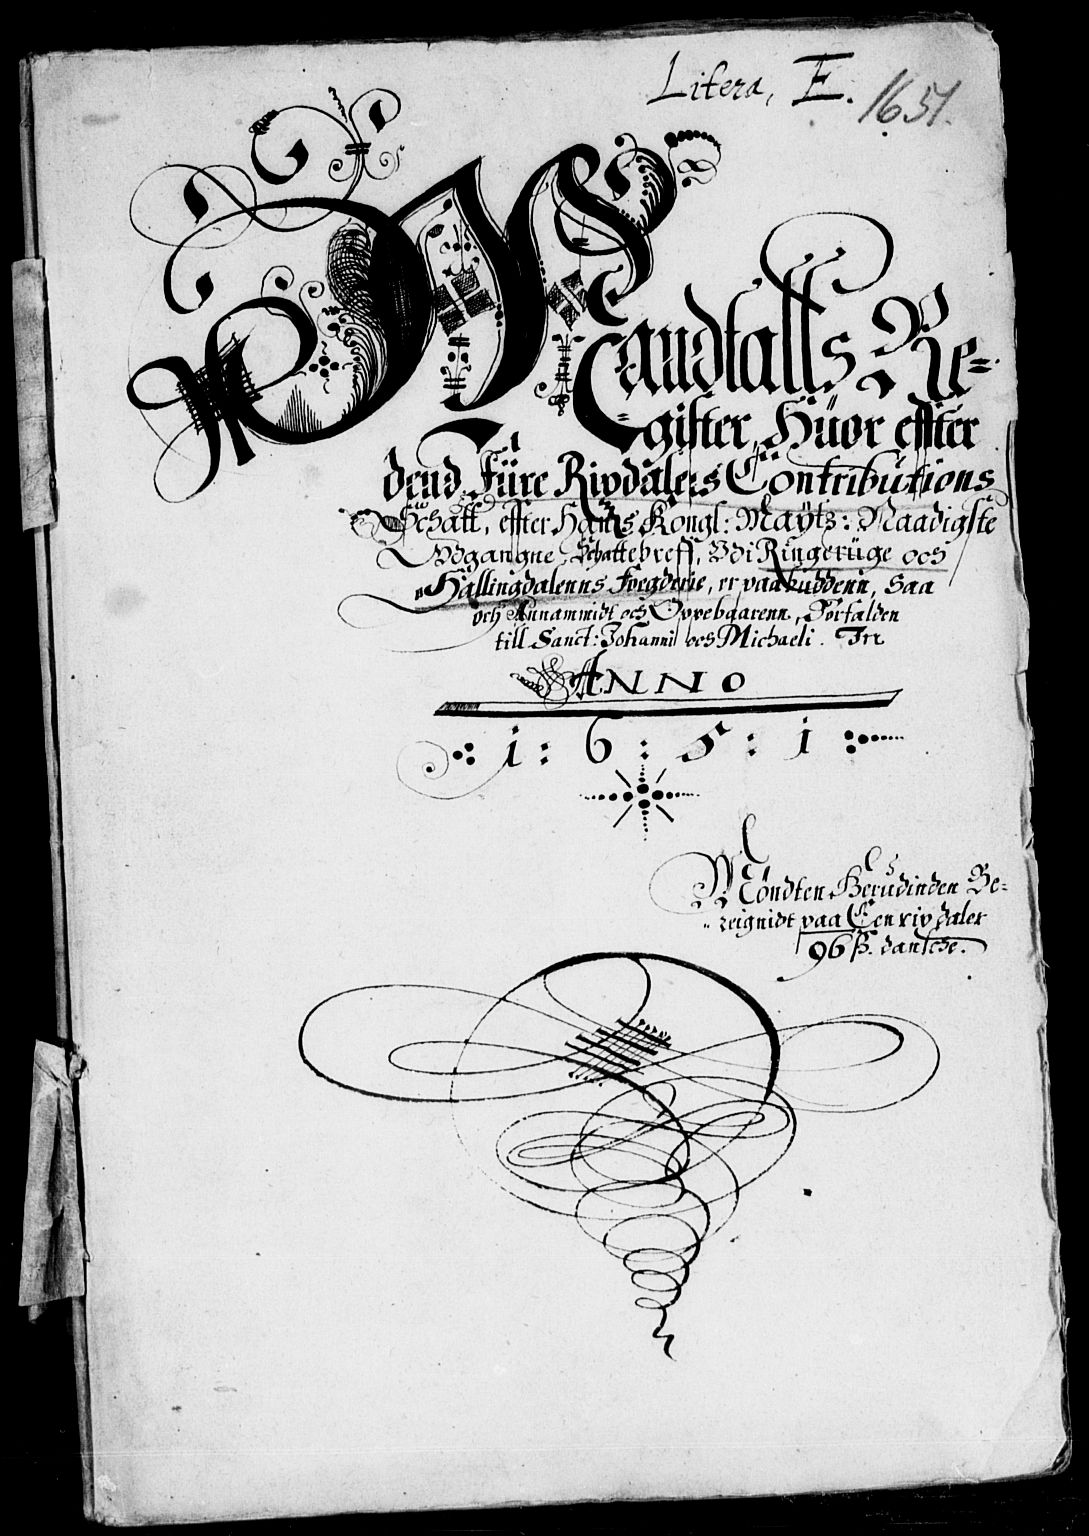 Litera, E. 1651.
Mandtalls Re=
gister, Huor effter
dend Füre Rixdalers Contributions
Schatt, effter Hanns Kongl: Maytz: Naadigste
Vdgangne Schattebreff, Vdi Ringerüge och
Hallingdalenns Foegderie, er paabuddenn, Saa
och Annammidt och Oppebaarenn, Forfalden
till Sanct: Johannis och Michaeli.
ANNO
: 1 : 6 : 5 : 1 :
Möndten Herudinden Be=
reignidt paa Een rix daler
96 ß. danske.